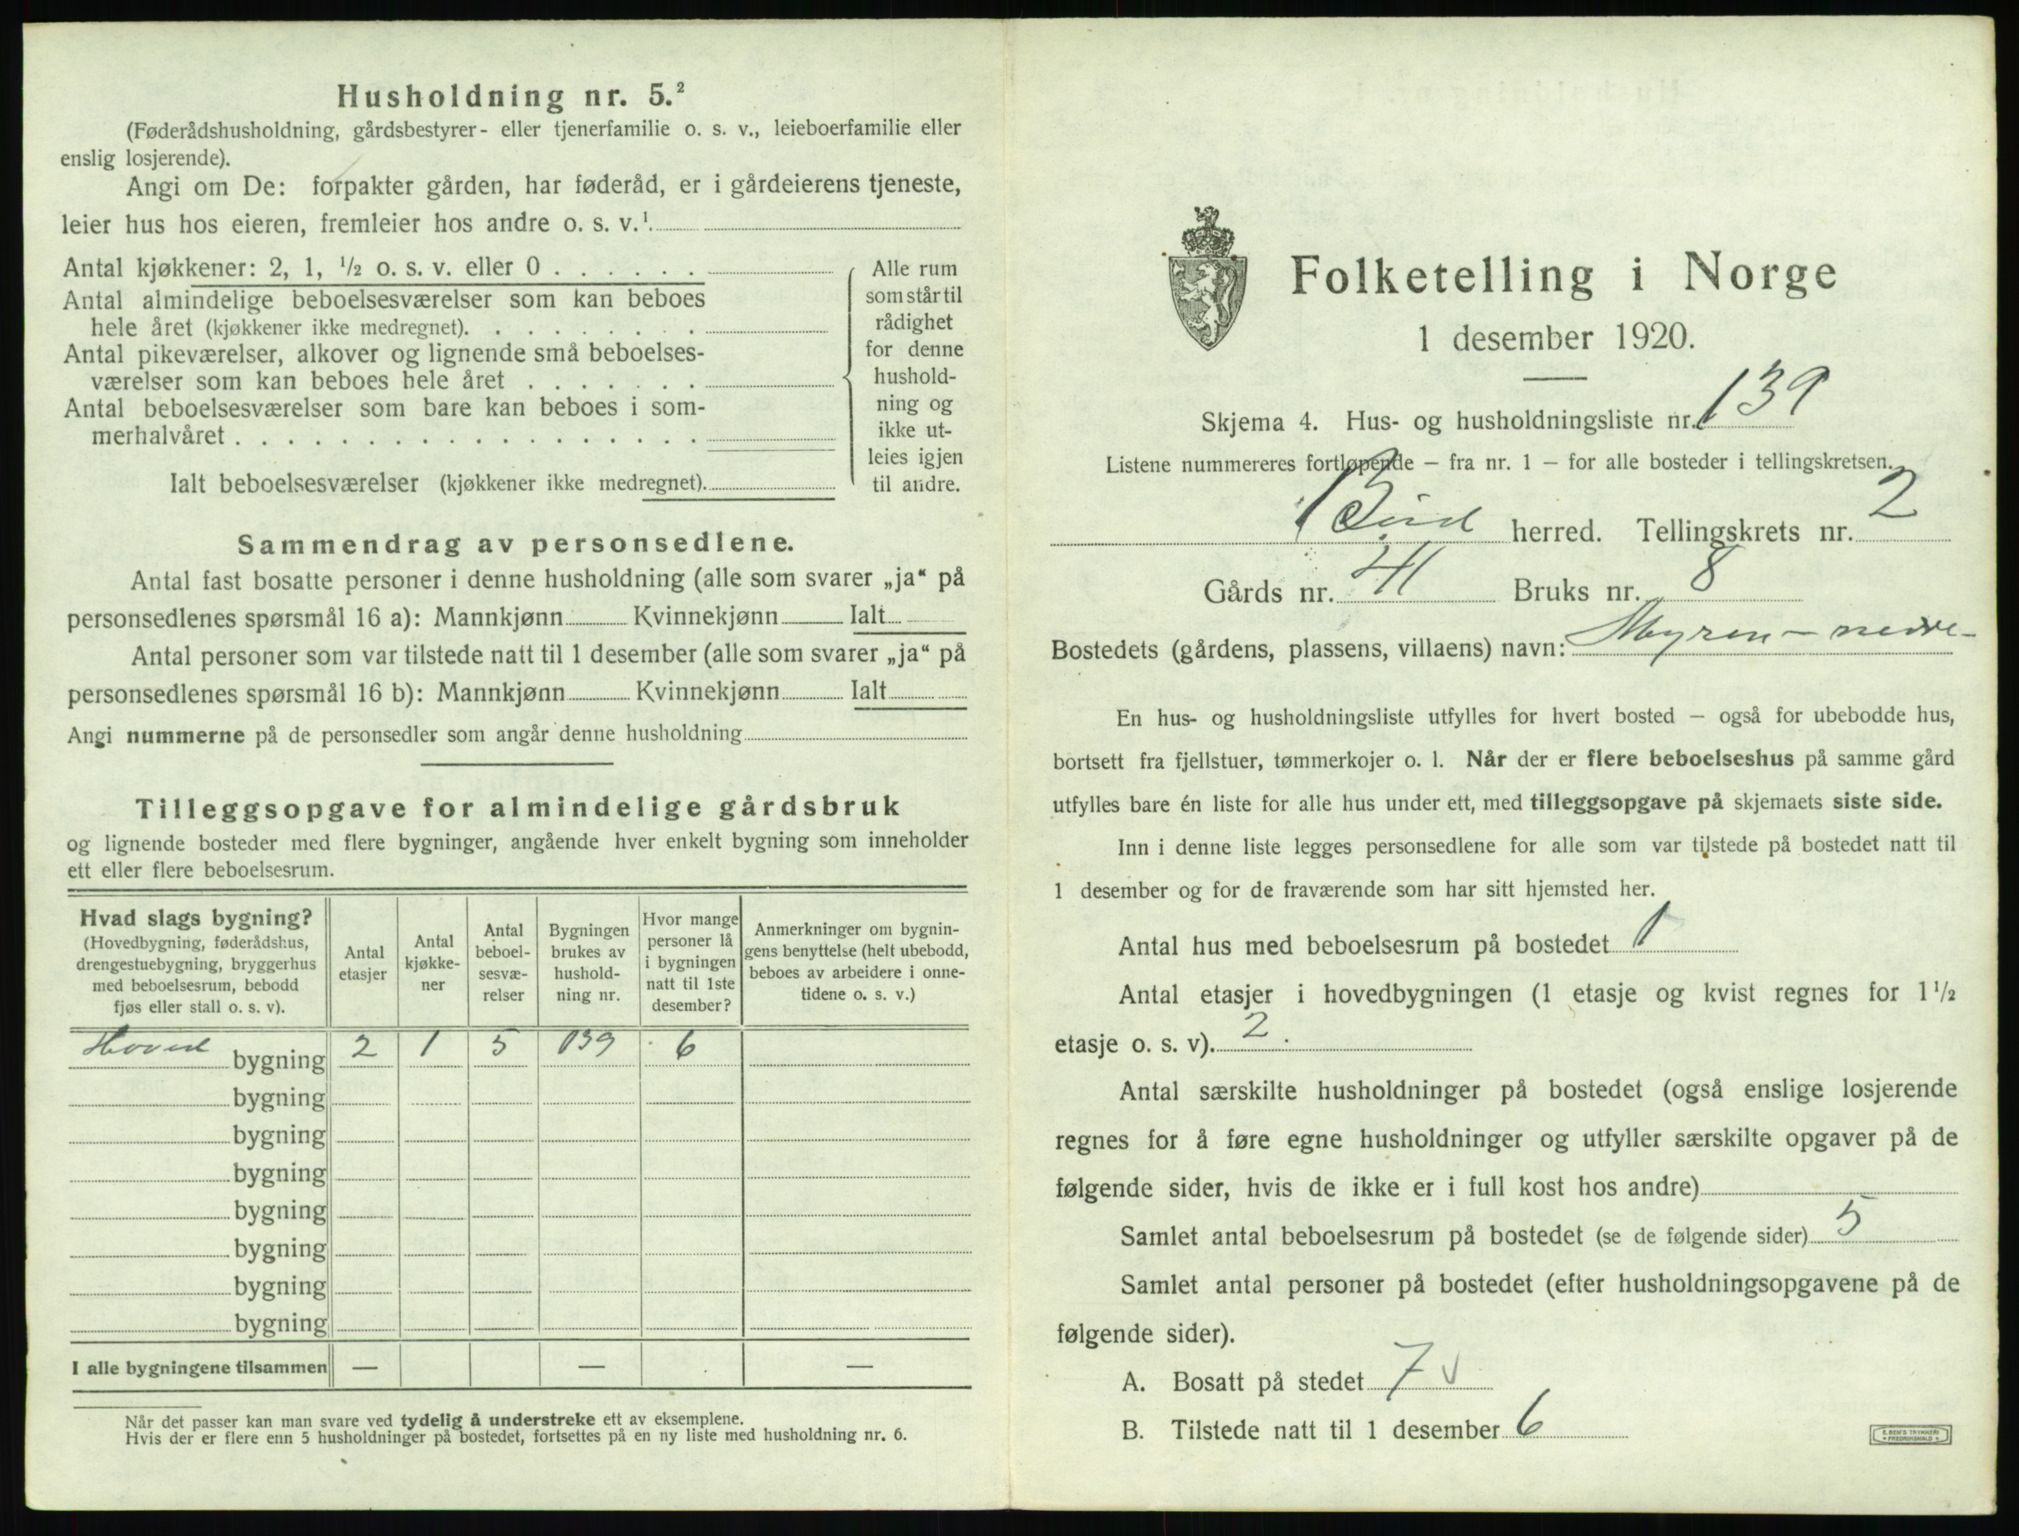 Husholdning nr. 5.²
(Føderådshusholdning, gårdsbestyrer- eller tjenerfamilie o. s. v., leieboerfamilie eller
enslig losjerende).
Angi om De: forpakter gården, har føderåd, er i gårdeierens tjeneste,
leier hus hos eieren, fremleier hos andre o. s. v.¹
Antal kjøkkener: 2, 1, ½ o. s. v. eller 0
Antal almindelige beboelsesværelser som kan beboes
hele året (kjøkkener ikke medregnet).
Antal pikeværelser, alkover og lignende små beboelses-
værelser som kan beboes hele året
Antal beboelsesværelser som bare kan beboes i som-
merhalvåret
Ialt beboelsesværelser (kjøkkener ikke medregnet).
Alle rum
som står til
rådighet
for denne
hushold-
ning og
ikke ut-
leies igjen
til andre.
Sammendrag av personsedlene.
Antal fast bosatte personer i denne husholdning (alle som svarer „ja“ på
personsedlenes spørsmål 16 a): Mannkjønn Kvinnekjønn Ialt
Antal personer som var tilstede natt til 1 desember (alle som svarer „ja“ på
personsedlenes spørsmål 16 b): Mannkjønn Kvinnekjønn Ialt
Angi nummerne på de personsedler som angår denne husholdning
Tilleggsopgave for almindelige gårdsbruk
og lignende bosteder med flere bygninger, angående hver enkelt bygning som inneholder
ett eller flere beboelsesrum.
Hvad slags bygning?
(Hovedbygning, føderådshus,
drengestuebygning, bryggerhus
med beboelsesrum, bebodd
fjøs eller stall o. s. v).
Antal
etasjer
Antal
kjøkke-
ner
Antal
beboel-
sesvæ-
relser
Bygningen
brukes av
hushold-
ning nr.
Hvor mange
personer lå
i bygningen
natt til 1ste
desember?
Anmerkninger om bygnin-
gens benyttelse (helt ubebodd,
beboes av arbeidere i onne-
tidene o. s. v.)
Hoved bygning 2 1 5 139 6
bygning
bygning
bygning
bygning
bygning
bygning
bygning
I alle bygningene tilsammen — — —
Når det passer kan man svare ved tydelig å understreke ett av eksemplene.
Hvis der er flere enn 5 husholdninger på bostedet, fortsettes på en ny liste med husholdning nr. 6.
Folketelling i Norge
1 desember 1920.
Skjema 4. Hus- og husholdningsliste nr. 139
Listene nummereres fortløpende – fra nr. 1 – for alle bosteder i tellingskretsen.
Bud herred. Tellingskrets nr. 2
Gårds nr. 41 Bruks nr. 8
Bostedets (gårdens, plassens, villaens) navn: Myren – nedre
En hus- og husholdningsliste utfylles for hvert bosted – også for ubebodde hus,
bortsett fra fjellstuer, tømmerkojer o. l. Når der er flere beboelseshus på samme gård
utfylles bare én liste for alle hus under ett, med tilleggsopgave på skjemaets siste side.
Inn i denne liste legges personsedlene for alle som var tilstede på bostedet natt til
1 desember og for de fraværende som har sitt hjemsted her.
Antal hus med beboelsesrum på bostedet 1
Antal etasjer i hovedbygningen (1 etasje og kvist regnes for 1½
etasje o. s. v). 2
Antal særskilte husholdninger på bostedet (også enslige losjerende
regnes for å føre egne husholdninger og utfyller særskilte opgaver på de
følgende sider, hvis de ikke er i full kost hos andre)
Samlet antal beboelsesrum på bostedet (se de følgende sider) 5
Samlet antal personer på bostedet (efter husholdningsopgavene på de
følgende sider).
A. Bosatt på stedet 7 v
B. Tilstede natt til 1 desember 6